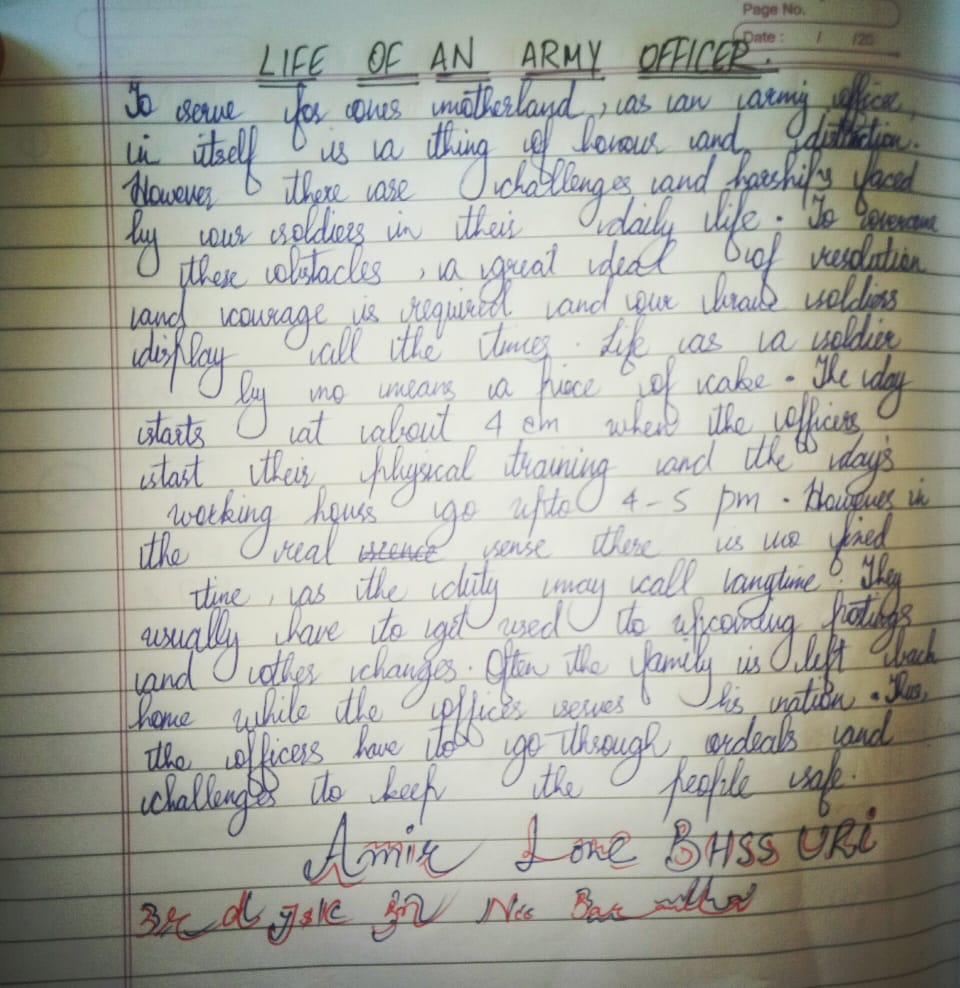 Page No.
Date : / /20
LIFE OF AN ARMY OFFICER.
To serve for ones motherland, as an army officer,
in itself is a thing of honour and distinction.
However there are challenges and harships faced
by our soldiers in their daily life. To overcome
these obstacles, a great ideal of resolution
and courage is required and our brave soldiers
display all the times. Life as a soldier
by no means a piece of cake. The day
starts at about 4 am when the officers
start their physical training and the day's
working hours go upto 4-5 pm. However in
the real sense there is no fixed
time, as the duty may call anytime. They
usually have to get used to upcoming postings
and other changes. Often the family is left back
home while the officer serves his nation. Thus,
the officers have to go through ordeals and
challenges to keep the people safe.
Amir Lone BHSS URI
3rd J&K Ncc